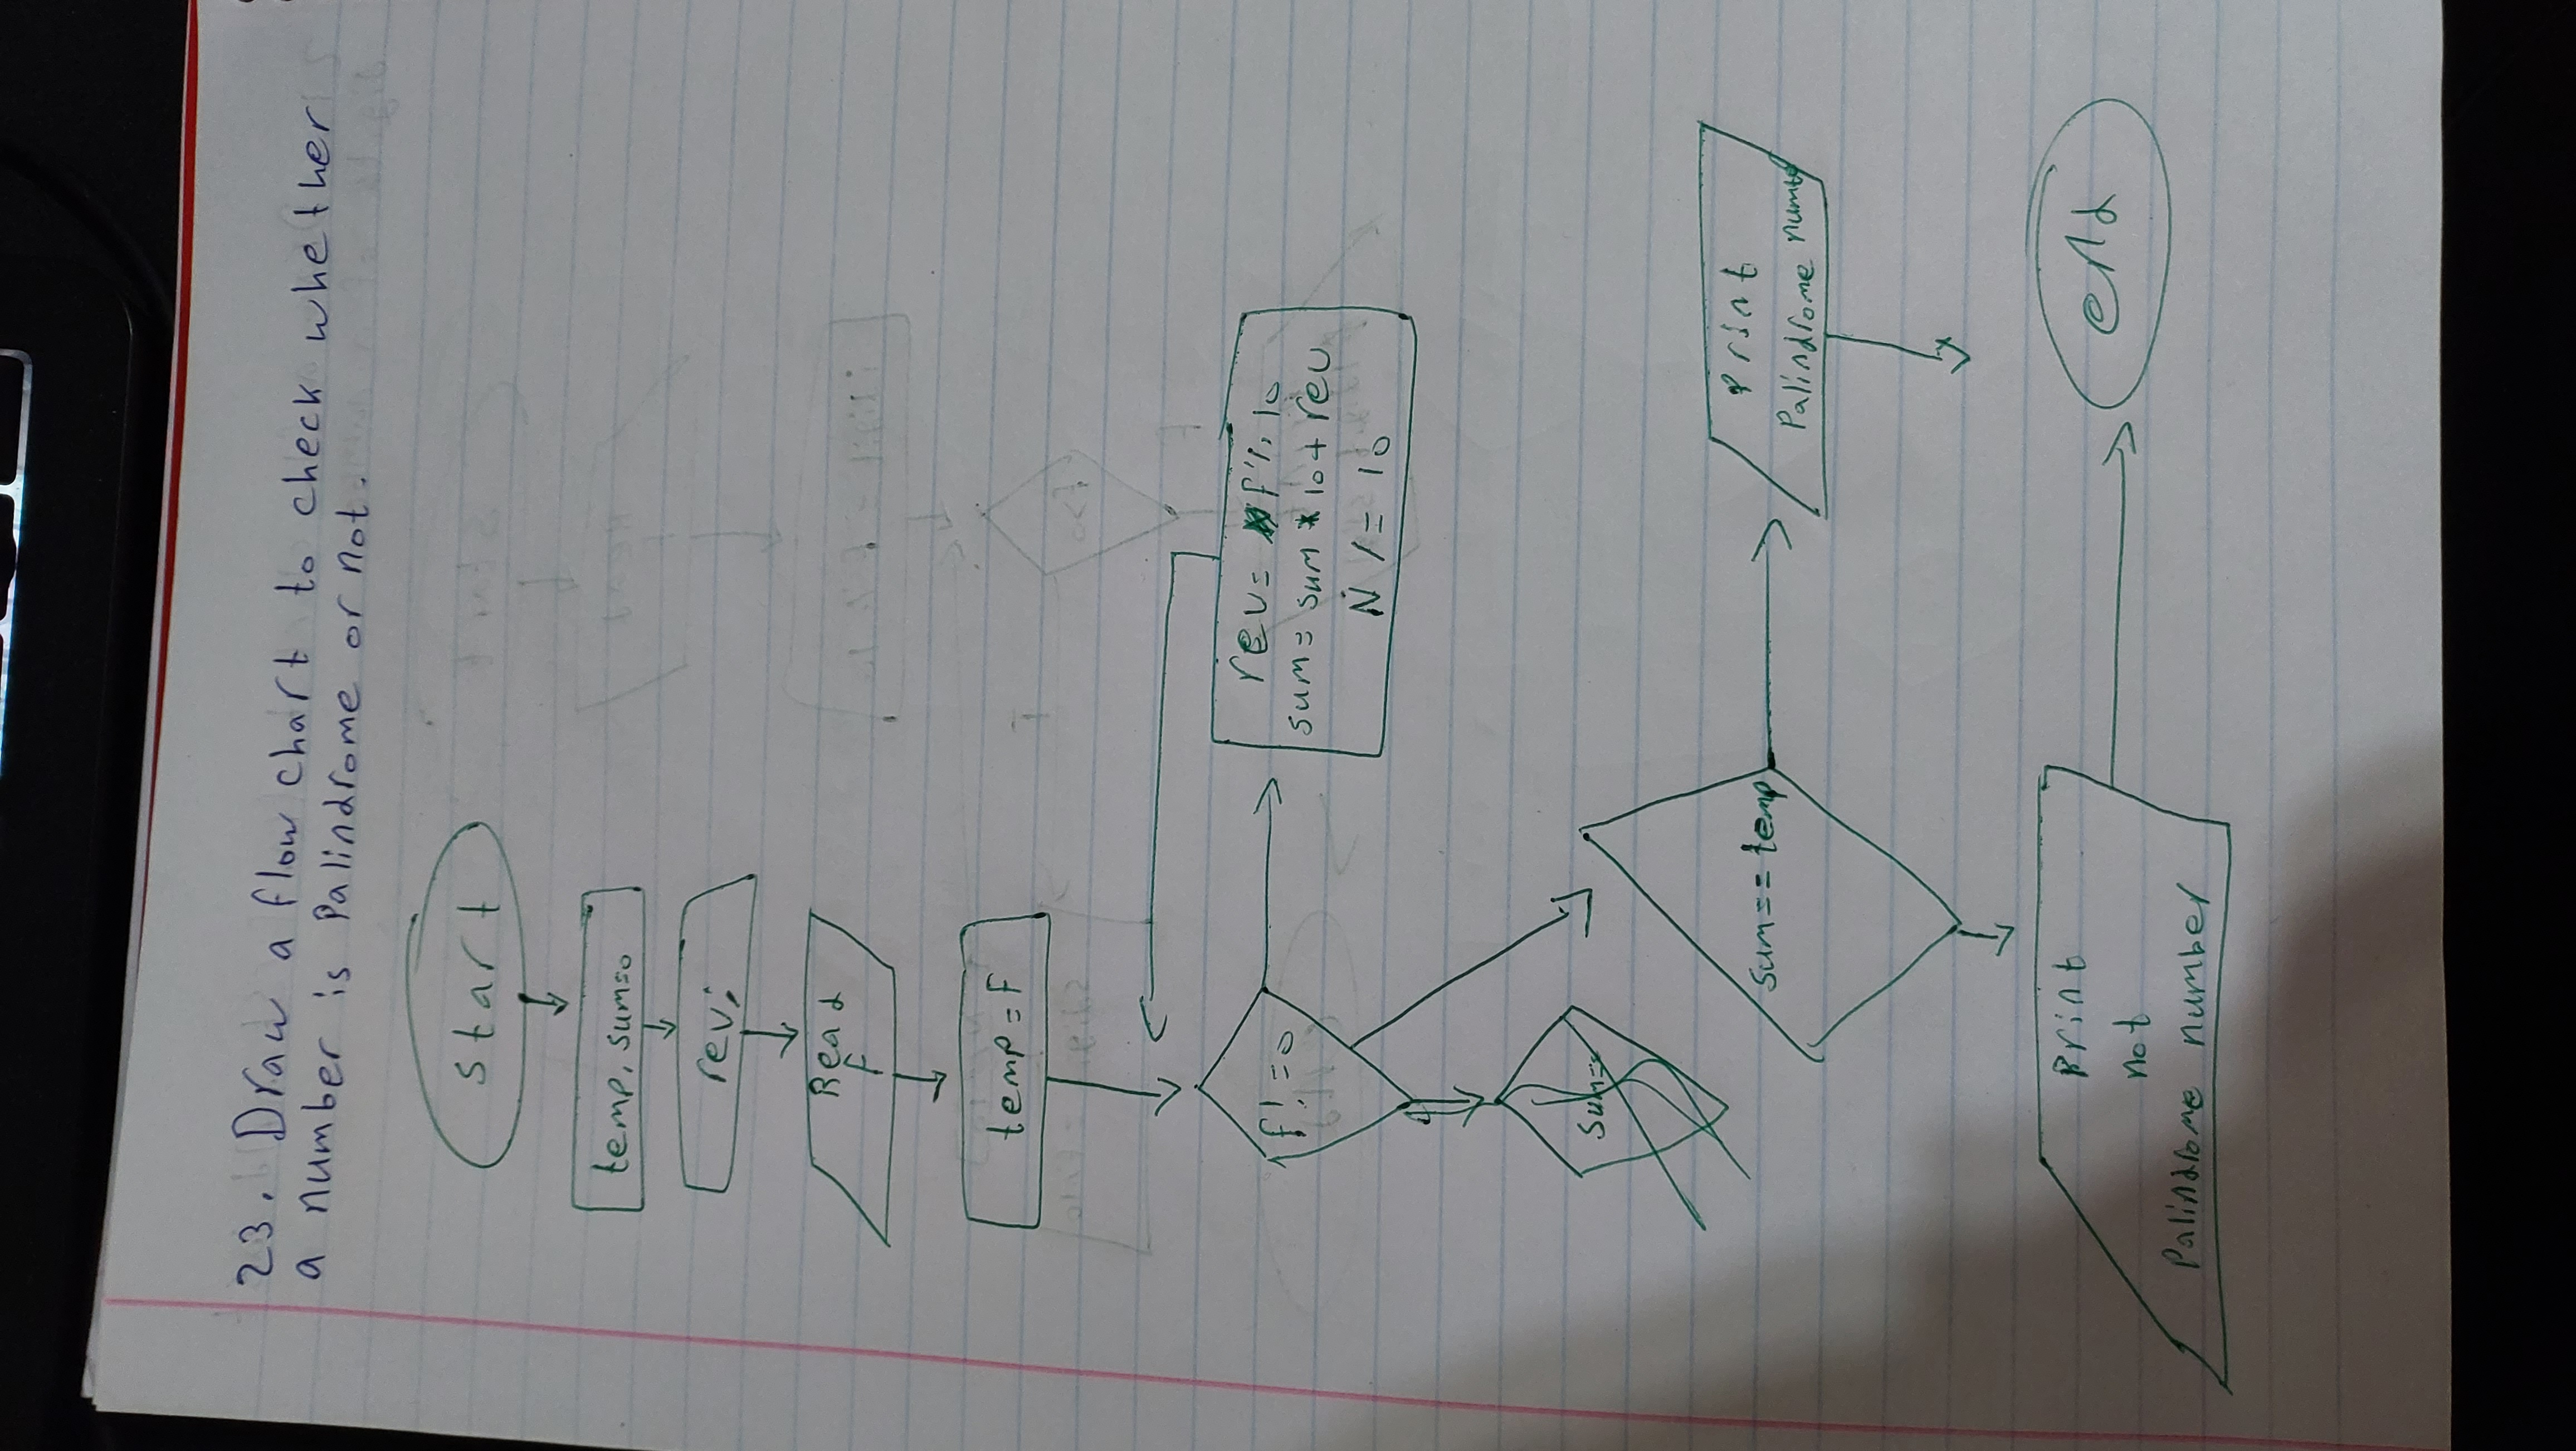 23. Draw a flow chart to check whether
a number is Palindrome or not.
start
temp, sum=0
rev;
Read
F
temp = F
f! = 0
rev = f % 10
sum = sum * 10 + rev
N /= 10
sum==
sum == temp
Print
Palindrome
Print
not
Palindrome number
end